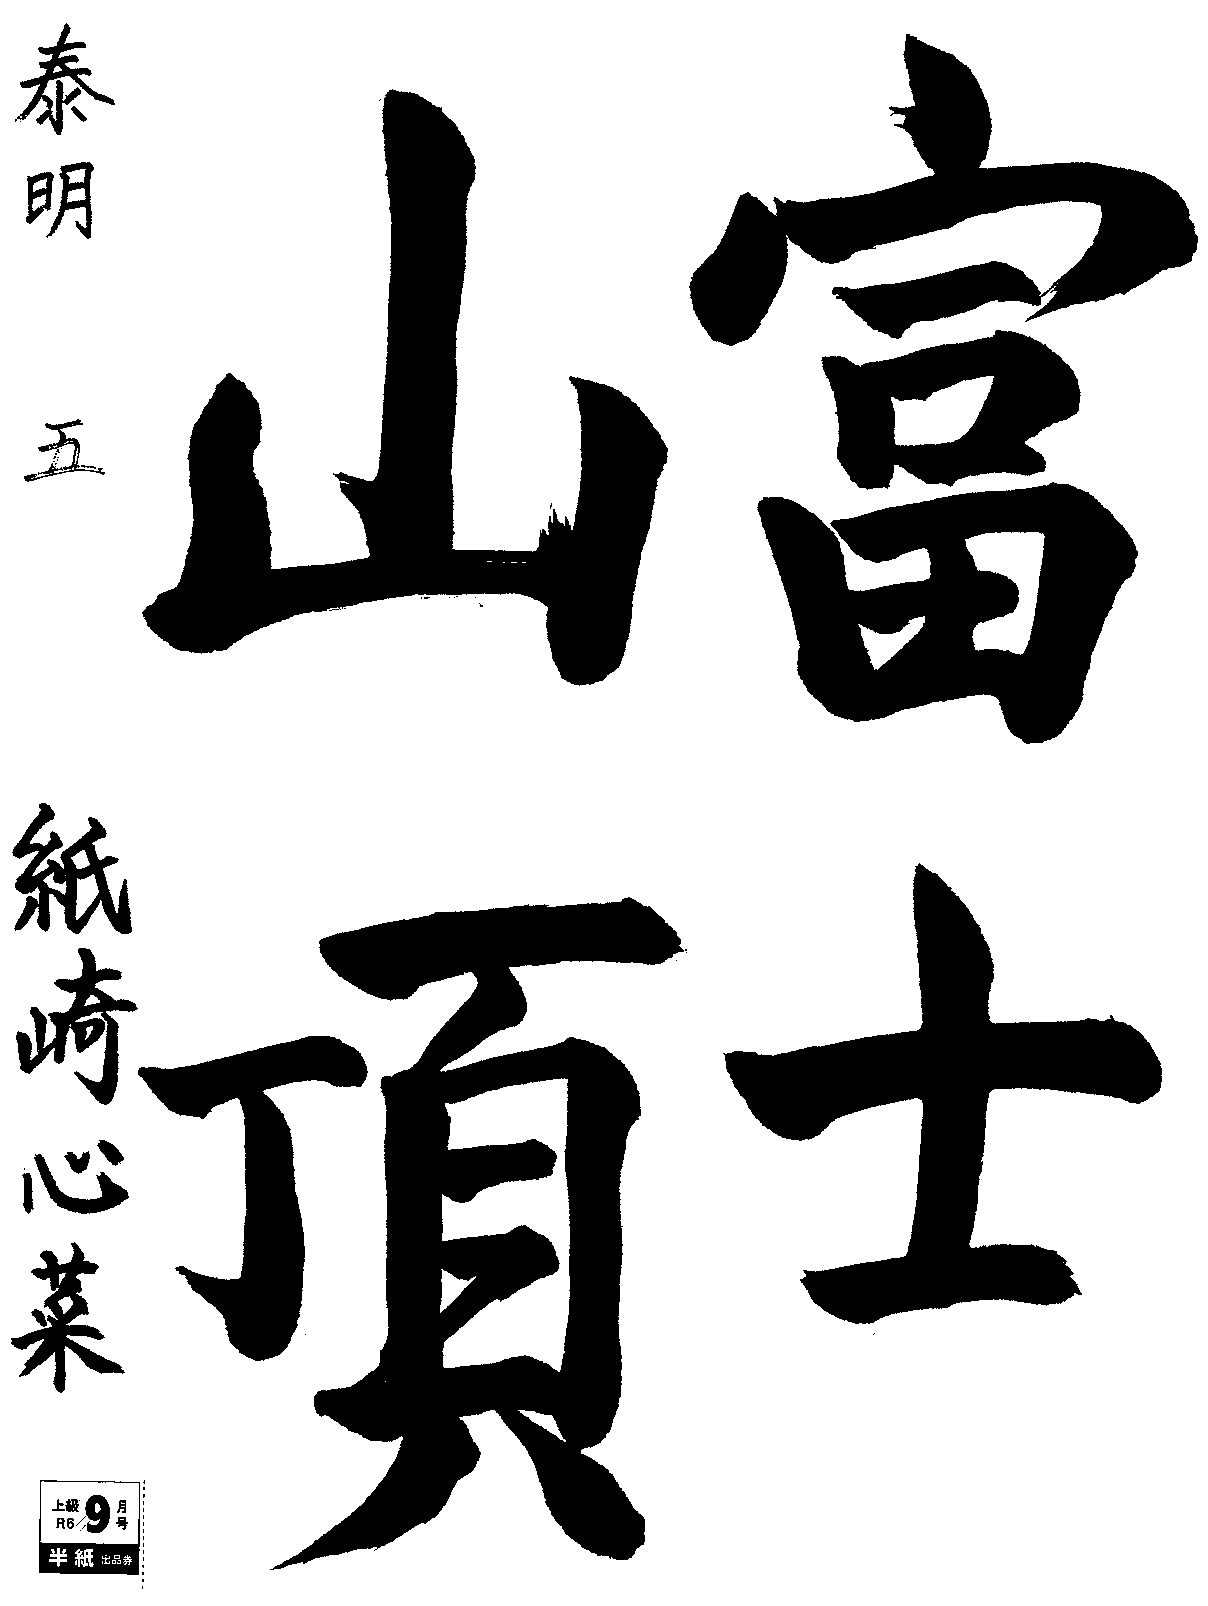 富士
山頂
泰明 五 紙崎心菜
上級 R6/9月号
半紙 出品券